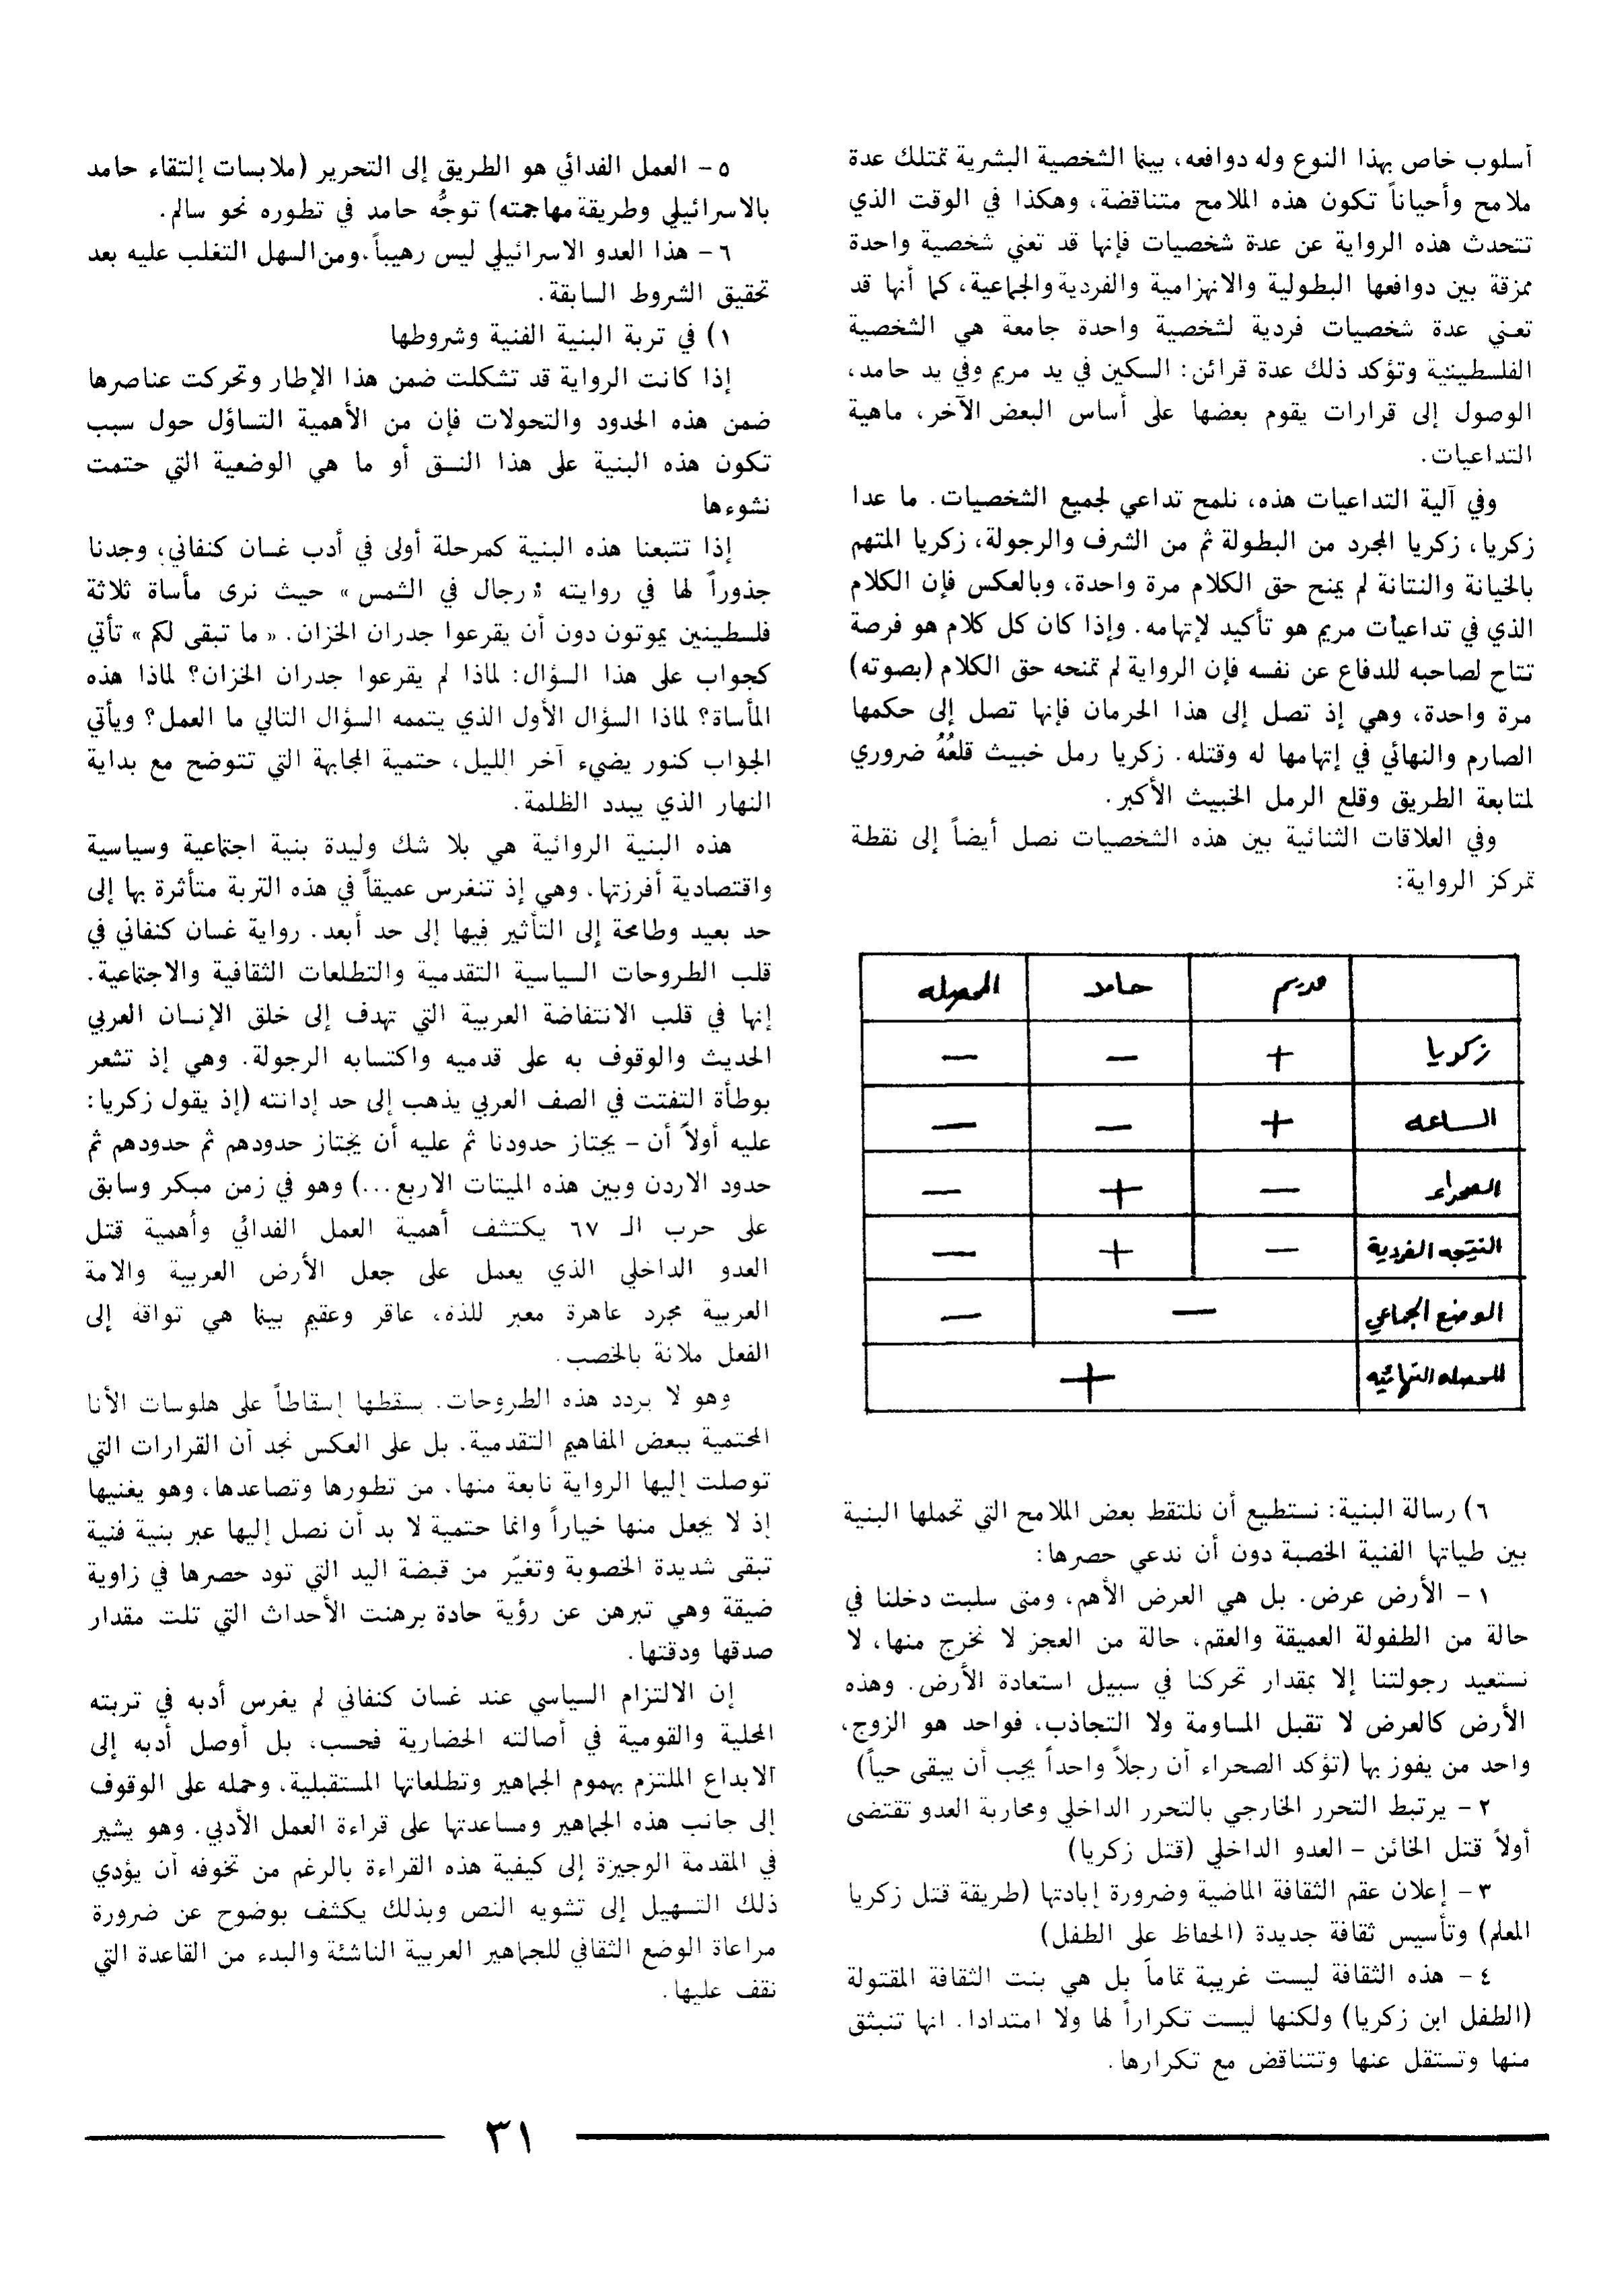 أسلوب خاص بهذا النوع وله دوافعه، بينما الشخصية البشرية تمتلك عدة
ملامح وأحياناً تكون هذه الملامح متناقضة، وهكذا في الوقت الذي
تتحدث هذه الرواية عن عدة شخصيات فإنها قد تعني شخصية واحدة
ممزقة بين دوافعها البطولية والانهزامية والفردية والجماعية، كما أنها قد
تعني عدة شخصيات فردية لشخصية واحدة جامعة هي الشخصية
الفلسطينية وتؤكد ذلك عدة قرائن: السكين في يد مريم وفي يد حامد،
الوصول إلى قرارات يقوم بعضها على أساس البعض الآخر، ماهية
التداعيات.
وفي آلية التداعيات هذه، نلمح تداعي لجميع الشخصيات. ما عدا
زكريا، زكريا المجرد من البطولة ثم من الشرف والرجولة، زكريا المتهم
بالخيانة والنتانة لم يمنح حق الكلام مرة واحدة، وبالعكس فإن الكلام
الذي في تداعيات مريم هو تأكيد لإتهامه. وإذا كان كل كلام هو فرصة
تتاح لصاحبه للدفاع عن نفسه فإن الرواية لم تمنحه حق الكلام (بصوته)
مرة واحدة، وهي إذ تصل إلى هذا الحرمان فإنها تصل إلى حكمها
الصارم والنهائي في إتهامها له وقتله. زكريا رمل خبيث قلعُهُ ضروري
لمتابعة الطريق وقلع الرمل الخبيث الأكبر.
وفي العلاقات الثنائية بين هذه الشخصيات نصل أيضاً إلى نقطة
تمركز الرواية:
مريم حامد المحصله
زكريا + − −
الساعه + − −
الصحراء − + −
النتيجه الفردية − + −
الوضع الجماعي − −
المحصله النهائيه +
٦) رسالة البنية: نستطيع أن نلتقط بعض الملامح التي تحملها البنية
بين طياتها الفنية الخصبة دون أن ندعي حصرها:
١ - الأرض عرض. بل هي العرض الأهم، ومتى سلبت دخلنا في
حالة من الطفولة العميقة والعقم، حالة من العجز لا نخرج منها، لا
نستعيد رجولتنا إلا بمقدار تحركنا في سبيل استعادة الأرض. وهذه
الأرض كالعرض لا تقبل المساومة ولا التجاذب، فواحد هو الزوج،
واحد من يفوز بها (تؤكد الصحراء أن رجلاً واحداً يجب أن يبقى حياً)
٢ - يرتبط التحرر الخارجي بالتحرر الداخلي ومحاربة العدو تقتضى
أولاً قتل الخائن - العدو الداخلي (قتل زكريا)
٣ - إعلان عقم الثقافة الماضية وضرورة إبادتها (طريقة قتل زكريا
المعلم) وتأسيس ثقافة جديدة (الحفاظ على الطفل)
٤ - هذه الثقافة ليست غريبة تماماً بل هي بنت الثقافة المقتولة
(الطفل ابن زكريا) ولكنها ليست تكراراً لها ولا امتدادا. انها تنبثق
منها وتستقل عنها وتتناقض مع تكرارها.
٥ - العمل الفدائي هو الطريق إلى التحرير (ملابسات إلتقاء حامد
بالاسرائيلي وطريقة مهاجمته) توجُّه حامد في تطوره نحو سالم.
٦ - هذا العدو الاسرائيلي ليس رهيباً، ومن السهل التغلب عليه بعد
تحقيق الشروط السابقة.
١) في تربة البنية الفنية وشروطها
إذا كانت الرواية قد تشكلت ضمن هذا الإطار وتحركت عناصرها
ضمن هذه الحدود والتحولات فإن من الأهمية التساؤل حول سبب
تكون هذه البنية على هذا النسق أو ما هي الوضعية التي حتمت
نشوءها
إذا تتبعنا هذه البنية كمرحلة أولى في أدب غسان كنفاني، وجدنا
جذوراً لها في روايته « رجال في الشمس » حيث نرى مأساة ثلاثة
فلسطينين يموتون دون أن يقرعوا جدران الخزان. « ما تبقى لكم » تأتي
كجواب على هذا السؤال: لماذا لم يقرعوا جدران الخزان؟ لماذا هذه
المأساة؟ لماذا السؤال الأول الذي يتممه السؤال التالي ما العمل؟ ويأتي
الجواب كنور يضيء آخر الليل، حتمية المجابهة التي تتوضح مع بداية
النهار الذي يبدد الظلمة.
هذه البنية الروائية هي بلا شك وليدة بنية اجتماعية وسياسية
واقتصادية أفرزتها. وهي إذ تنغرس عميقاً في هذه التربة متأثرة بها إلى
حد بعيد وطامحة إلى التأثير فيها إلى حد أبعد. رواية غسان كنفاني في
قلب الطروحات السياسية التقدمية والتطلعات الثقافية والاجتماعية.
إنها في قلب الانتفاضة العربية التي تهدف إلى خلق الإنسان العربي
الحديث والوقوف به على قدميه واكتسابه الرجولة. وهي إذ تشعر
بوطأة التفتت في الصف العربي يذهب إلى حد إدانته (إذ يقول زكريا:
عليه أولاً أن - يجتاز حدودنا ثم عليه أن يجتاز حدودهم ثم حدودهم ثم
حدود الاردن وبين هذه الميتات الاربع...) وهو في زمن مبكر وسابق
على حرب الـ ٦٧ يكتشف أهمية العمل الفدائي وأهمية قتل
العدو الداخلي الذي يعمل على جعل الأرض العربية والامة
العربية مجرد عاهرة معبر للذة، عاقر وعقيم بينما هي تواقة إلى
الفعل ملانة بالخصب.
وهو لا يردد هذه الطروحات. بسقطها إسقاطاً على هلوسات الأنا
المحتمية ببعض المفاهيم التقدمية. بل على العكس نجد أن القرارات التي
توصلت إليها الرواية نابعة منها. من تطورها وتصاعدها، وهو يغنيها
إذ لا يجعل منها خياراً وانما حتمية لا بد أن نصل إليها عبر بنية فنية
تبقى شديدة الخصوبة وتغيّر من قبضة اليد التي تود حصرها في زاوية
ضيقة وهي تبرهن عن رؤية حادة برهنت الأحداث التي تلت مقدار
صدقها ودقتها.
إن الالتزام السياسي عند غسان كنفاني لم يغرس أدبه في تربته
المحلية والقومية في أصالته الحضارية فحسب، بل أوصل أدبه إلى
الابداع الملتزم بهموم الجماهير وتطلعاتها المستقبلية، وحمله على الوقوف
إلى جانب هذه الجماهير ومساعدتها على قراءة العمل الأدبي. وهو يشير
في المقدمة الوجيزة إلى كيفية هذه القراءة بالرغم من تخوفه أن يؤدي
ذلك التسهيل إلى تشويه النص وبذلك يكشف بوضوح عن ضرورة
مراعاة الوضع الثقافي للجماهير العربية الناشئة والبدء من القاعدة التي
نقف عليها.
٣١